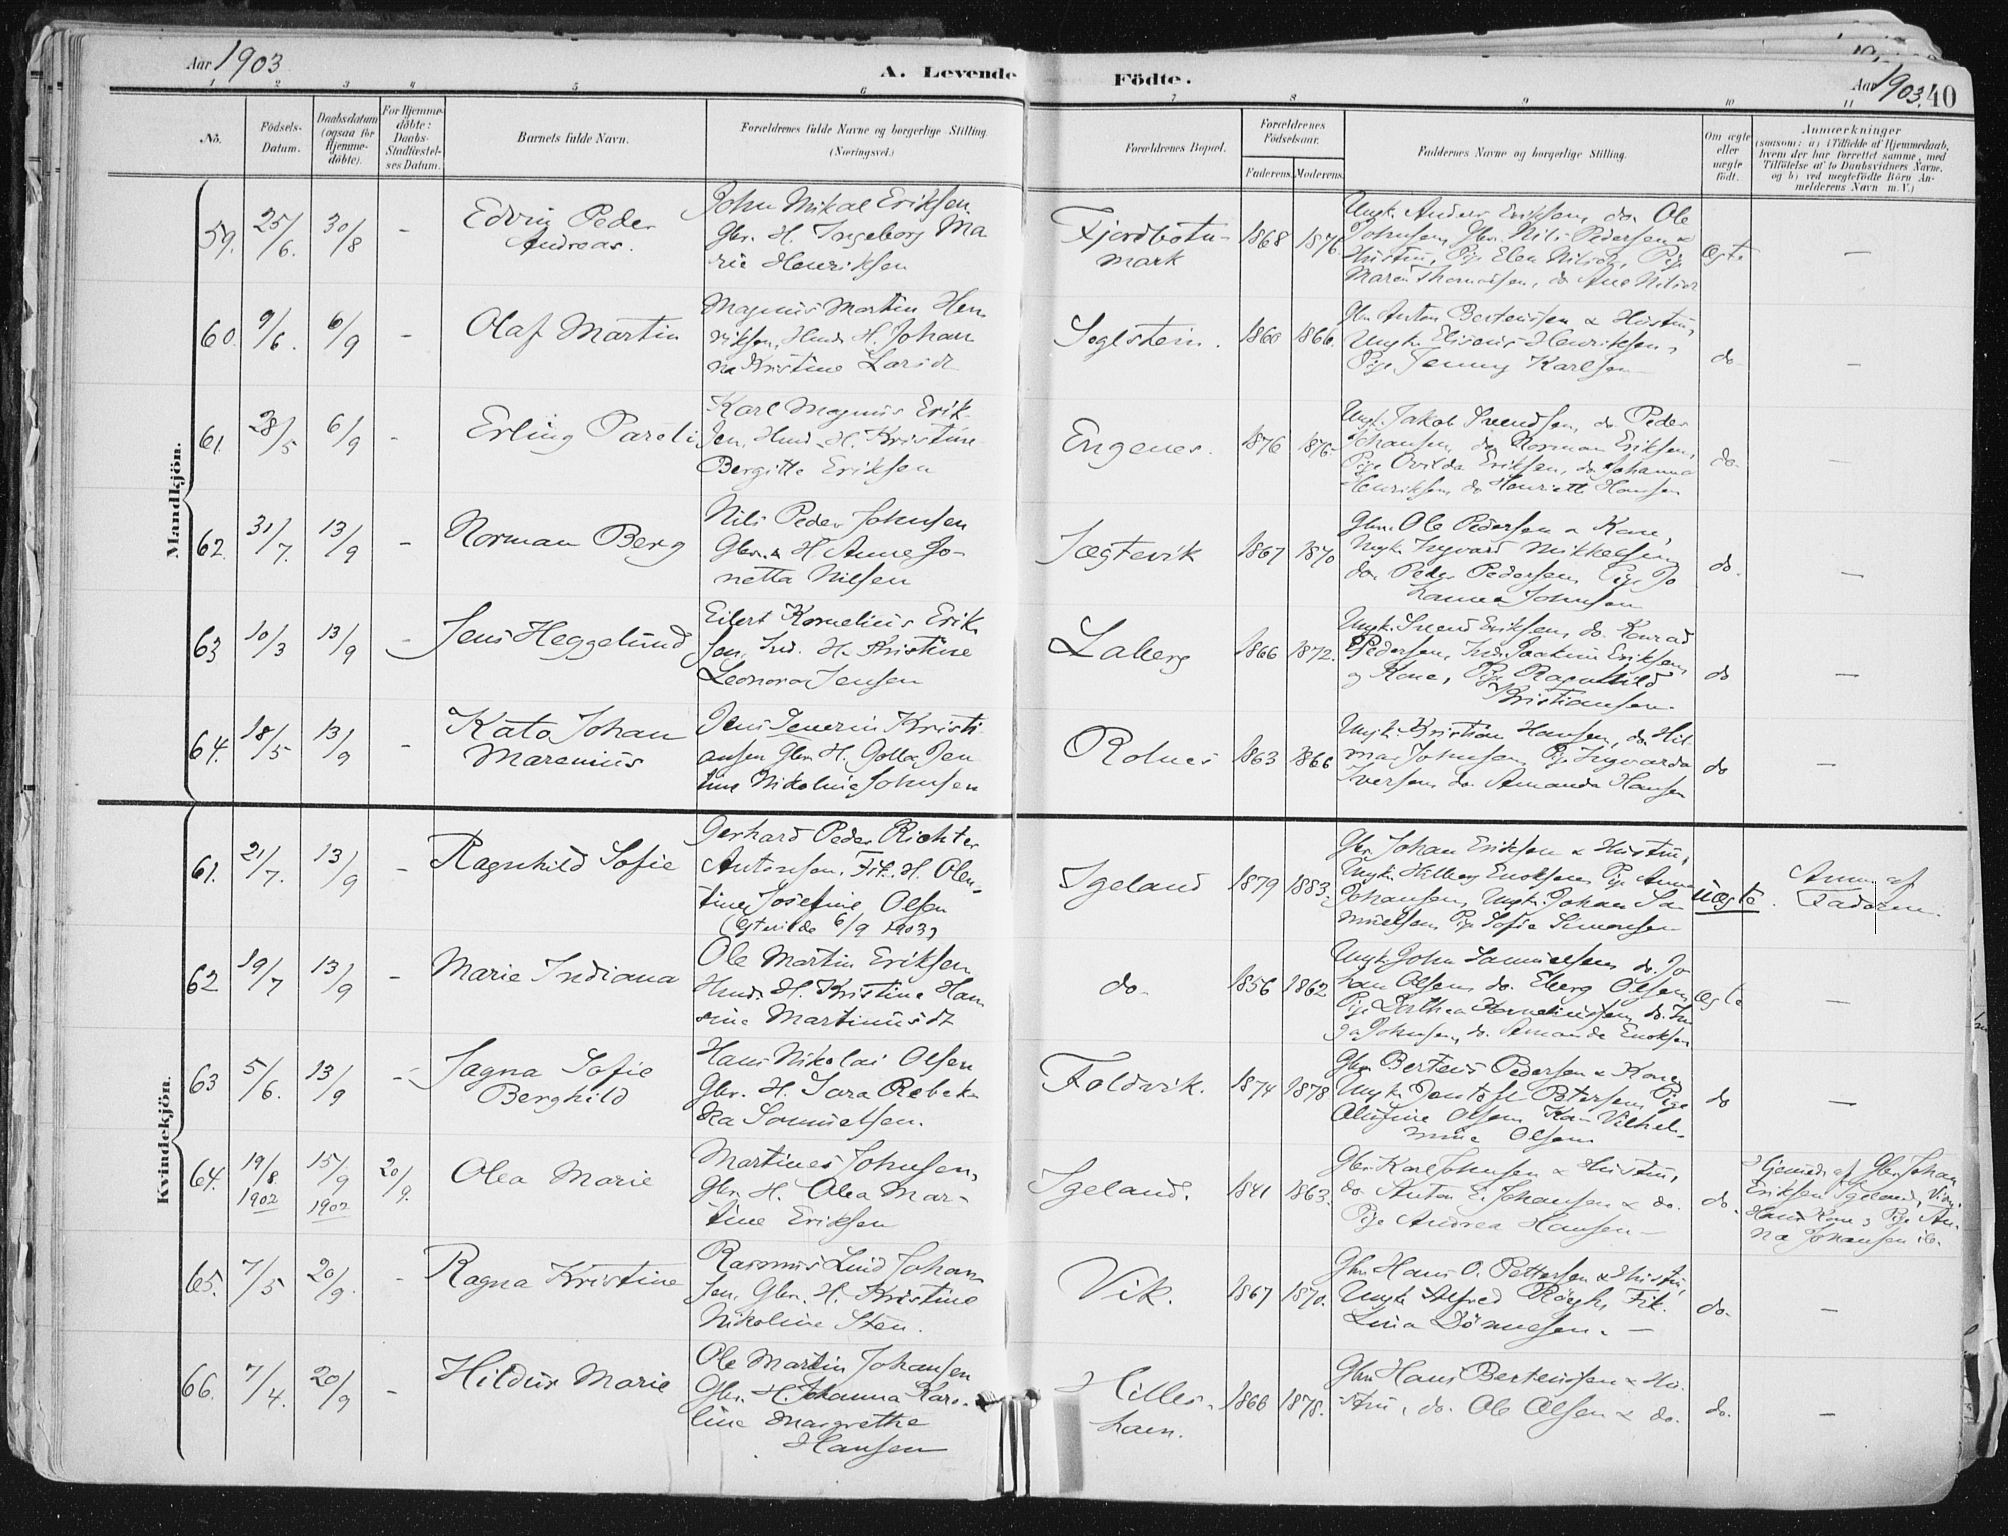 Aar 1903
A. Levende Födte.
Aar 1903. 40
1 2 3 4 5 6 7 8 9 10 11
No.
Födsels-
Datum.
Daabsdatum
(ogsaa for
Hjemme-
döbte).
For Hjemme-
döbte:
Daabs-
Stadfæstel-
ses Datum.
Barnets fulde Navn.
Forældrenes fulde Navne og borgerlige Stilling.
(Næringsvei.)
Forældrenes Bopæl.
Forældrenes
Födselsaar.
Faderens. Moderens.
Faddernes Navne og borgerlige Stilling.
Om ægte
eller
uægte
födt.
Anmærkninger
(saasom: a) i Tilfælde af Hjemmedaab,
hvem der har forrettet samme, med
Tilföielse af to Daabsvidners Navne,
og b) ved uægtefödte Börn An-
melderens Navn m.V.)
Mandkjön.
59. 25/6. 30/8 -
Edvin Peder
Andreas.
John Mikal Eriksen
Gbr. H. Ingeborg Ma
rie Henriksen
Fjordbotn-
mark
1868 1876
Ungk. Anders Eriksen, do. Ole
Johnsen, Gbr. Nils Pedersen &
Hustru, Pige Elen Nilsen, Pige
Maren Thomassen, do Ane Nilsen
ægte
—
60. 9/6. 6/9 -
Olaf Martin
Magnus Martin Hen
riksen, Hmd. H. Johan
na Kristine Larsdt.
Soglstein.
1860 1866.
Gbr Anton Berteussen & Hustru,
Ungk. Elisæus Henriksen,
Pige Jenny Karlsen
do
—
61. 28/5 6/9 -
Erling Pareli
Karl Magnus Erik-
sen, Hmd. H. Kristine
Bergitte Eriksen
Engenes.
1876 1876.
Ungk. Jakob Svendsen, do. Peder
Johansen, do. Norman Eriksen,
Pige Ovilda Eriksen, do. Johanna
Henriksen, do Henriette Hansen
do.
62. 31/7. 13/9 -
Norman Berg
Nils Peder Johnsen
Gbr. & H. Anne Jo-
netta Nilsen
Sægtevik
1867 1870
Gbr. Ole Pedersen & Kone,
Ungk. Ingvard Mikkelsen,
do. Peder Pedersen, Pige Jo
hanna Johnsen
do.
—
63 10/3 13/9 -
Jens Heggelund
Eilert Kornelius Erik
sen, Ind. H. Kristine
Leonora Jensen
Laberg
1866 1872.
Ungk. Svend Eriksen, do. Konrad
Pedersen, Ind. Joakim Eriksen,
og Kone, Pige Ragnhild
Kristiansen.
do
—
64. 18/5 13/9 -
Kato Johan
Marenius
Jens Severin Kristi
ansen Gbr. H. Golla Jen
tine Nikoline Johnsen
Rolnes
1863 1866
Ungk. Kristian Hansen, do. Hil-
mar Johnsen, Pige Ingvarda
Iversen, do. Amanda Hansen
do
—
Kvindekjön.
61. 21/7. 13/9 -
Ragnhild Sofie
Gerhard Peder Richter
Antonsen, Fik. H. Olen-
tine Josefine Olsen
(Egteviede 6/9 1903)
Igeland
1879 1883.
Gbr. Johan Eriksen & Hustru,
Ungk. Hilberg Enoksen, Pige Anna
Johansen, Ungk. Johan Sa
muelsen, Pige Sofie Simonsen
uægte.
Anm. af
Faderen.
62 19/7 13/9 -
Marie Indiana
Ole Martin Eriksen
Hmd. H. Kristine Han
sine Martinusdt
do.
1856 1862
Ungk. John Samuelsen, do. Jo
han Olsen, do. Eberg Olsen,
Pige Dorthea Korneliussen, do. In
ga Johnsen, do. Amanda Enoksen
ægte
—
63 5/6. 13/9 -
Sagna Sofie
Berghild
Hans Nikolai Olsen
Gbr. H. Sara Rebek-
ka Samuelsen.
Foldvik.
1874 1878
Gbr. Berteus Pedersen & Kone
Ungk. Petersen, Pige
Olufine Olsen, Vilhel-
mine Olsen
do
—
64. 19/8. 1902 15/9 1902 20/9.
Olea Marie
Martines Johnsen,
Gbr. H. Olea Mar-
tine Eriksen
Igeland.
1841 1863.
Gbr. Karl Johnsen & Hustru,
do Anton E. Johansen & do.
Pige Andrea Hansen —
do.
Hjemmed. af Gbr. Johan
Eriksen Igeland, Vidn.
Hans Kone & Pige An-
na Johansen ib.
65. 7/5 20/9. -
Ragna Kristine
Rasmus Lind Johan
sen, Gbr. H. Kristine
Nikoline Sten.
Vik.
1867 1870.
Gbr. Hans O. Pettersen & Hustru,
Ungk Alfred Røgh, Fik.
Lina Dønnesen. —
do.
—
66. 7/4. 20/9 -
Hildur Marie
Ole Martin Johansen
Gbr. H. Johanna Karo-
line Margrethe
Hansen
Hilles-
havn.
1868 1878.
Gbr. Hans Berteussen & Hu-
stru, do. Ole Olsen & do.
do.
—